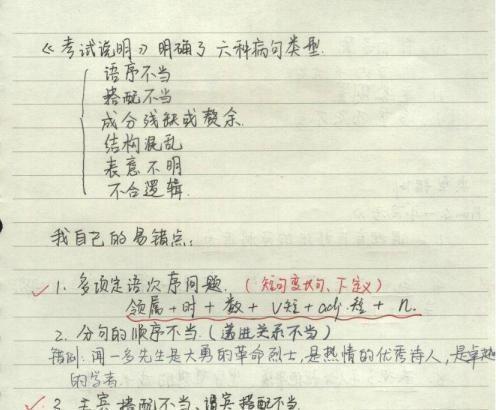 《考试说明》明确了六种病句类型.
语序不当
搭配不当
成分残缺或赘余.
结构混乱
表意不明
不合逻辑.
我自己的易错点:
✓ 1. 多项定语次序问题. (短句变长句、下定义)
领属+时+数+V短+adj.短+n.
2. 分句的顺序不当. (递进关系不当)
错例: 闻一多先生是大勇的革命烈士, 是热情的优秀诗人, 是卓越
的学者
✓ 3. 主宾搭配不当、谓宾搭配不当.